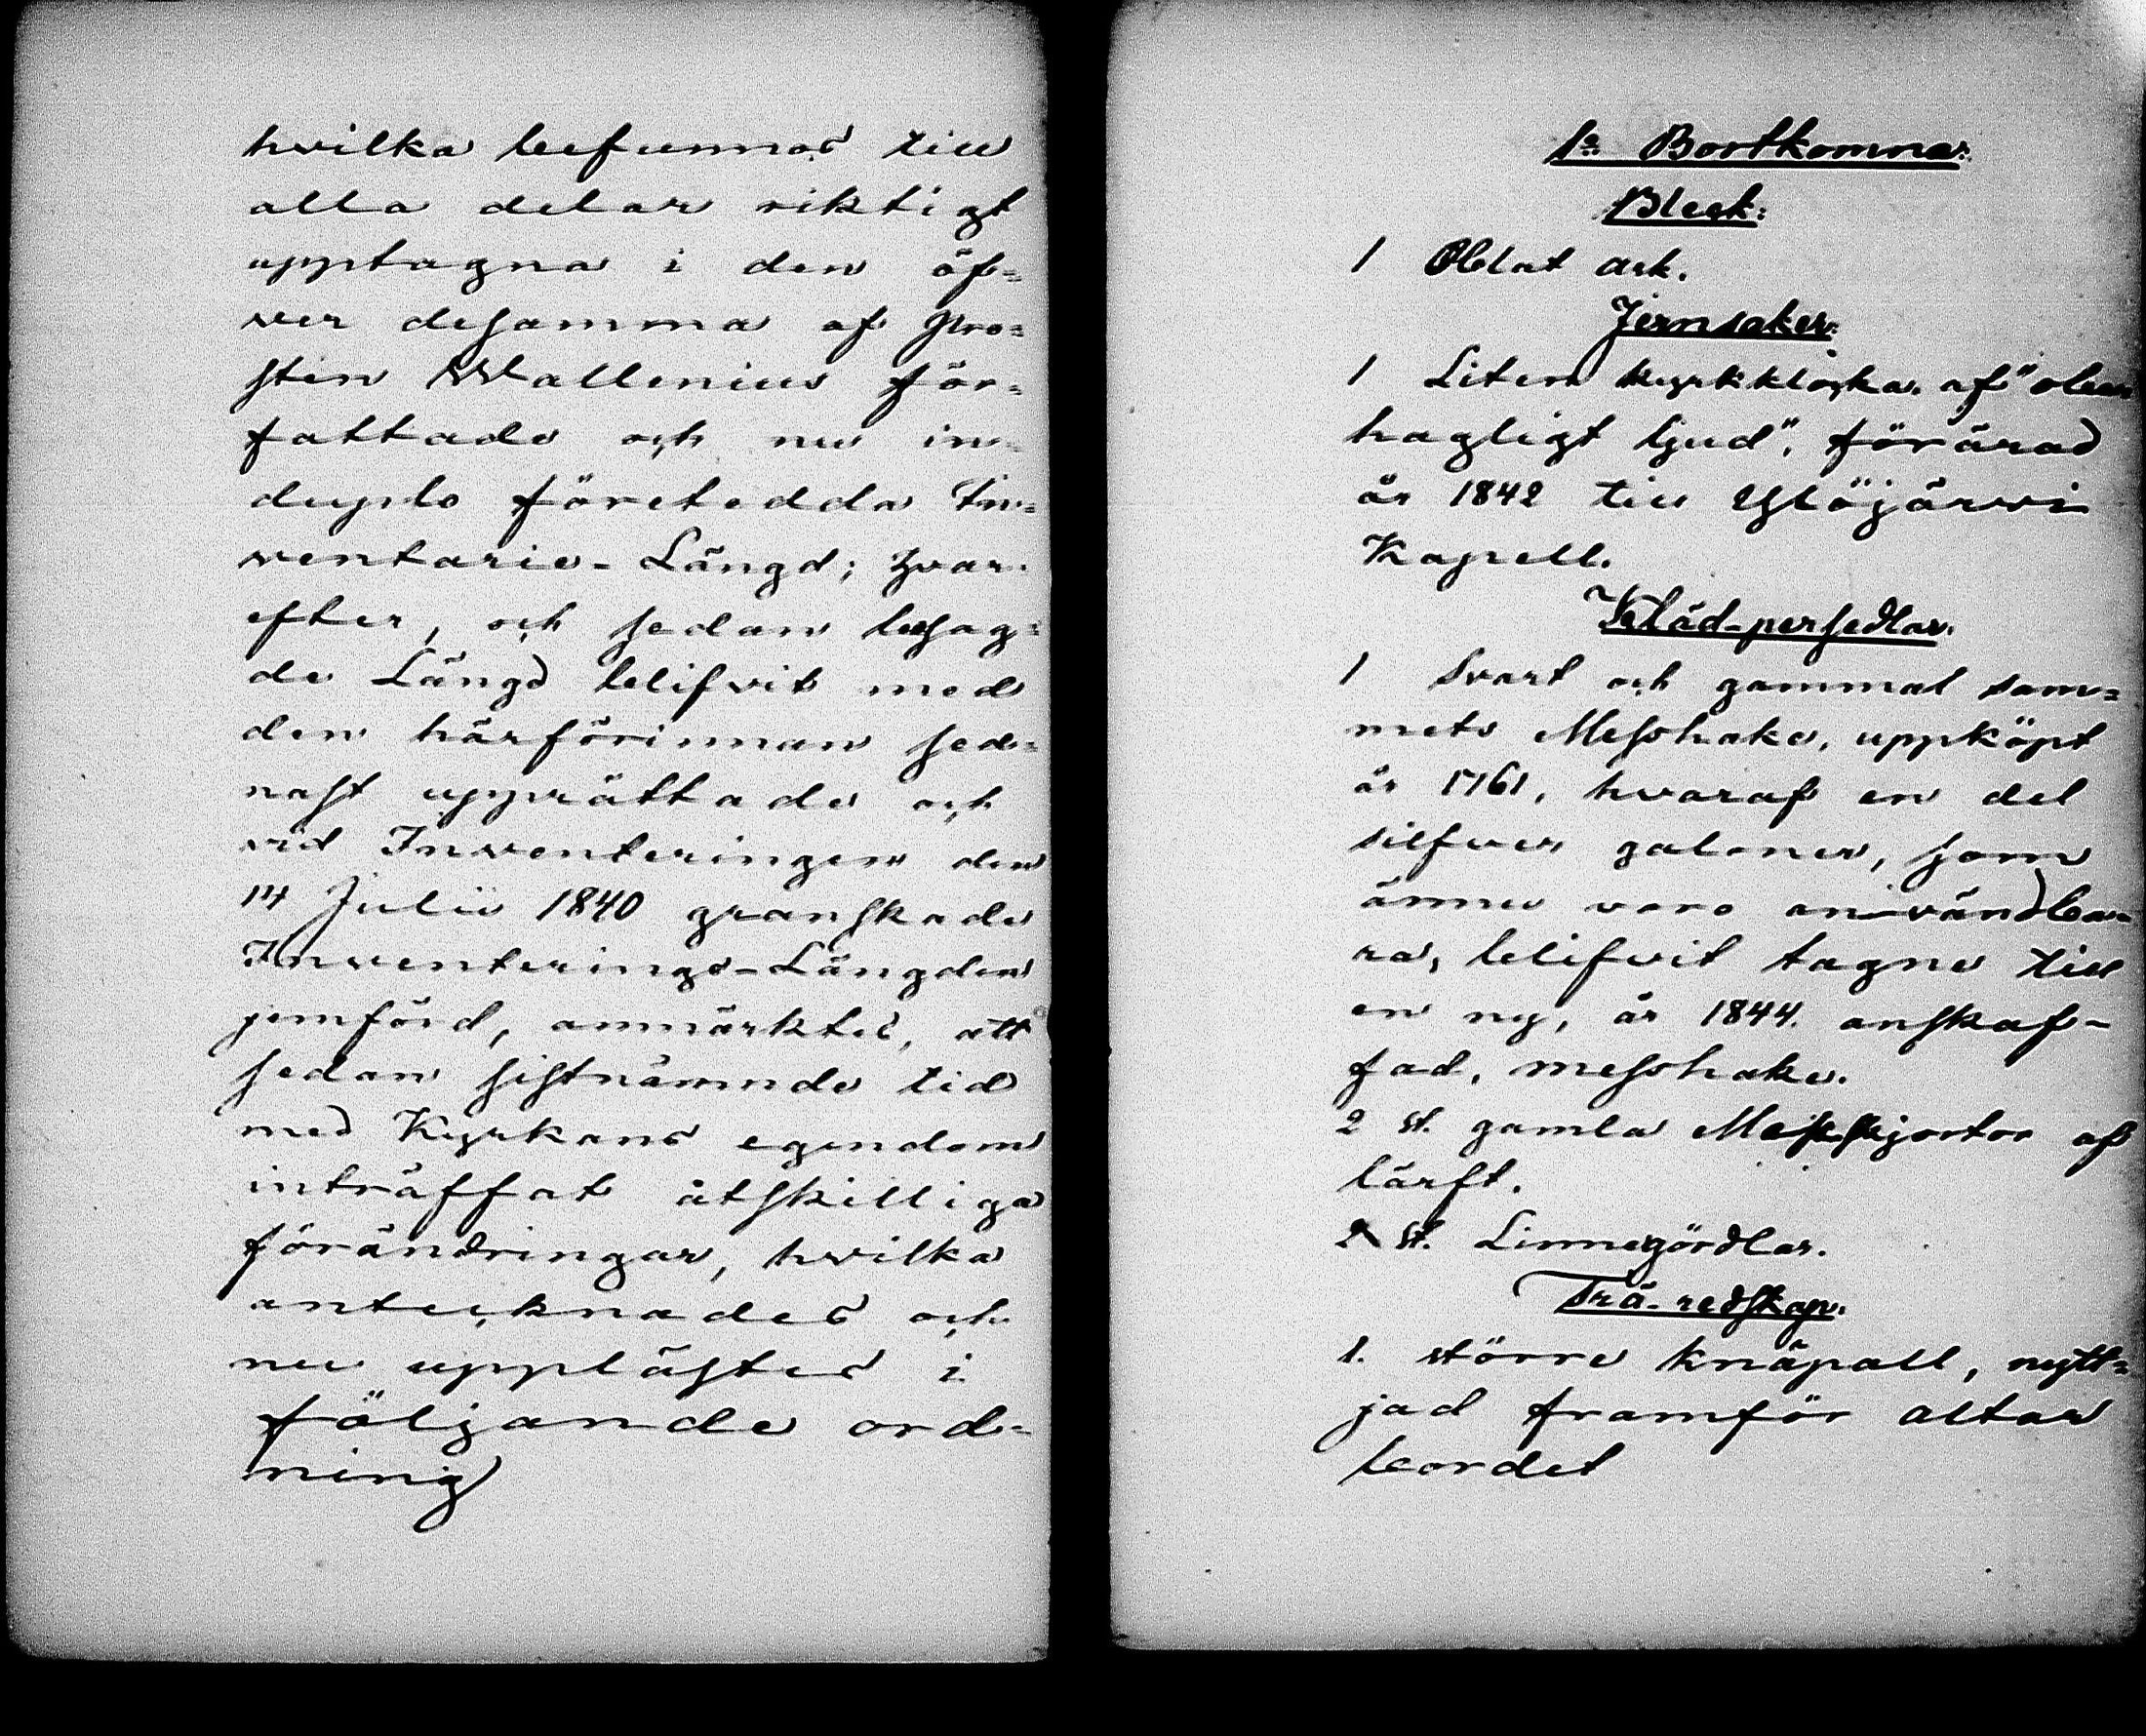 hvilka befunnos till
alla delar riktigt
upptagna i den öf=
ver desamma af Pro=
sten Wallenius för=
fattade och nu in
duplo företedda In=
ventarie-Längd; hvar=
efter, och sedan besag=
de Längd blifvit med
den härförinnan sed=
nast upprättade och
vid Inventeringen den
14 Julii 1840 granskade
Inventerings-Längden
jemförd, anmärktes, att
sedan sistnämnde tid
med Kyrkans egendom
inträffat åtskilliga
förändringar, hvilka
antecknades och
nu upplästes i
följande ord=
ning
1o Bortkomna:
Bleck:
1 Oblat ask.
Jernsaker:
1 Liten kyrkklocka, af "obe
hagligt ljud", förärad
år 1842 till Ylöjärvi
Kapell.
Kläd-persedlar.
1 Svart och gammal sam=
mets Messhake, uppköpt
år 1761, hvaraf en del
silfver galoner, som
ännu voro användba=
ra, blifvit tagne till
en ny, år 1844. anskaf-
fad, messhake.
2 st. gamla Messskjortor af
lärft.
2 st. Linnegördlar.
Trä-redskap.
1. större knäpall, nytt=
jad framför altar
bordet